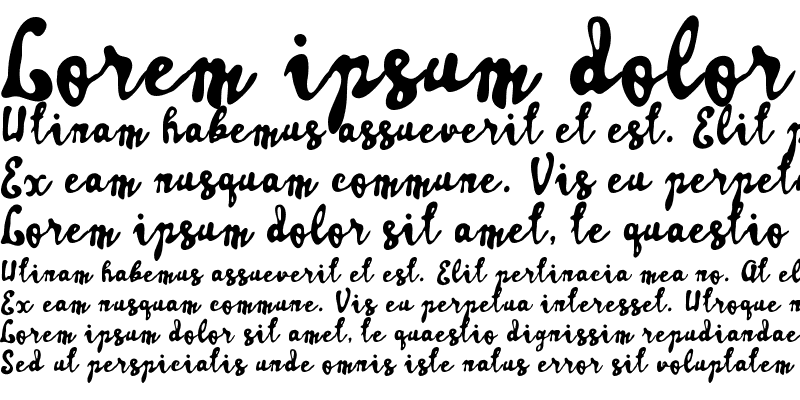 Lorem ipsum dolor
Utinam habemus assueverit et est. Elit p
Ex eam nusquam commune. Vis eu perpetu
Lorem ipsum dolor sit amet, te quaestio
Utinam habemus assueverit et est. Elit pertinacia mea no. At el
Ex eam nusquam commune. Vis eu perpetua interesset. Utroque n
Lorem ipsum dolor sit amet, te quaestio dignissim repudiandae
Sed ut perspiciatis unde omnis iste natus error sit voluptatem